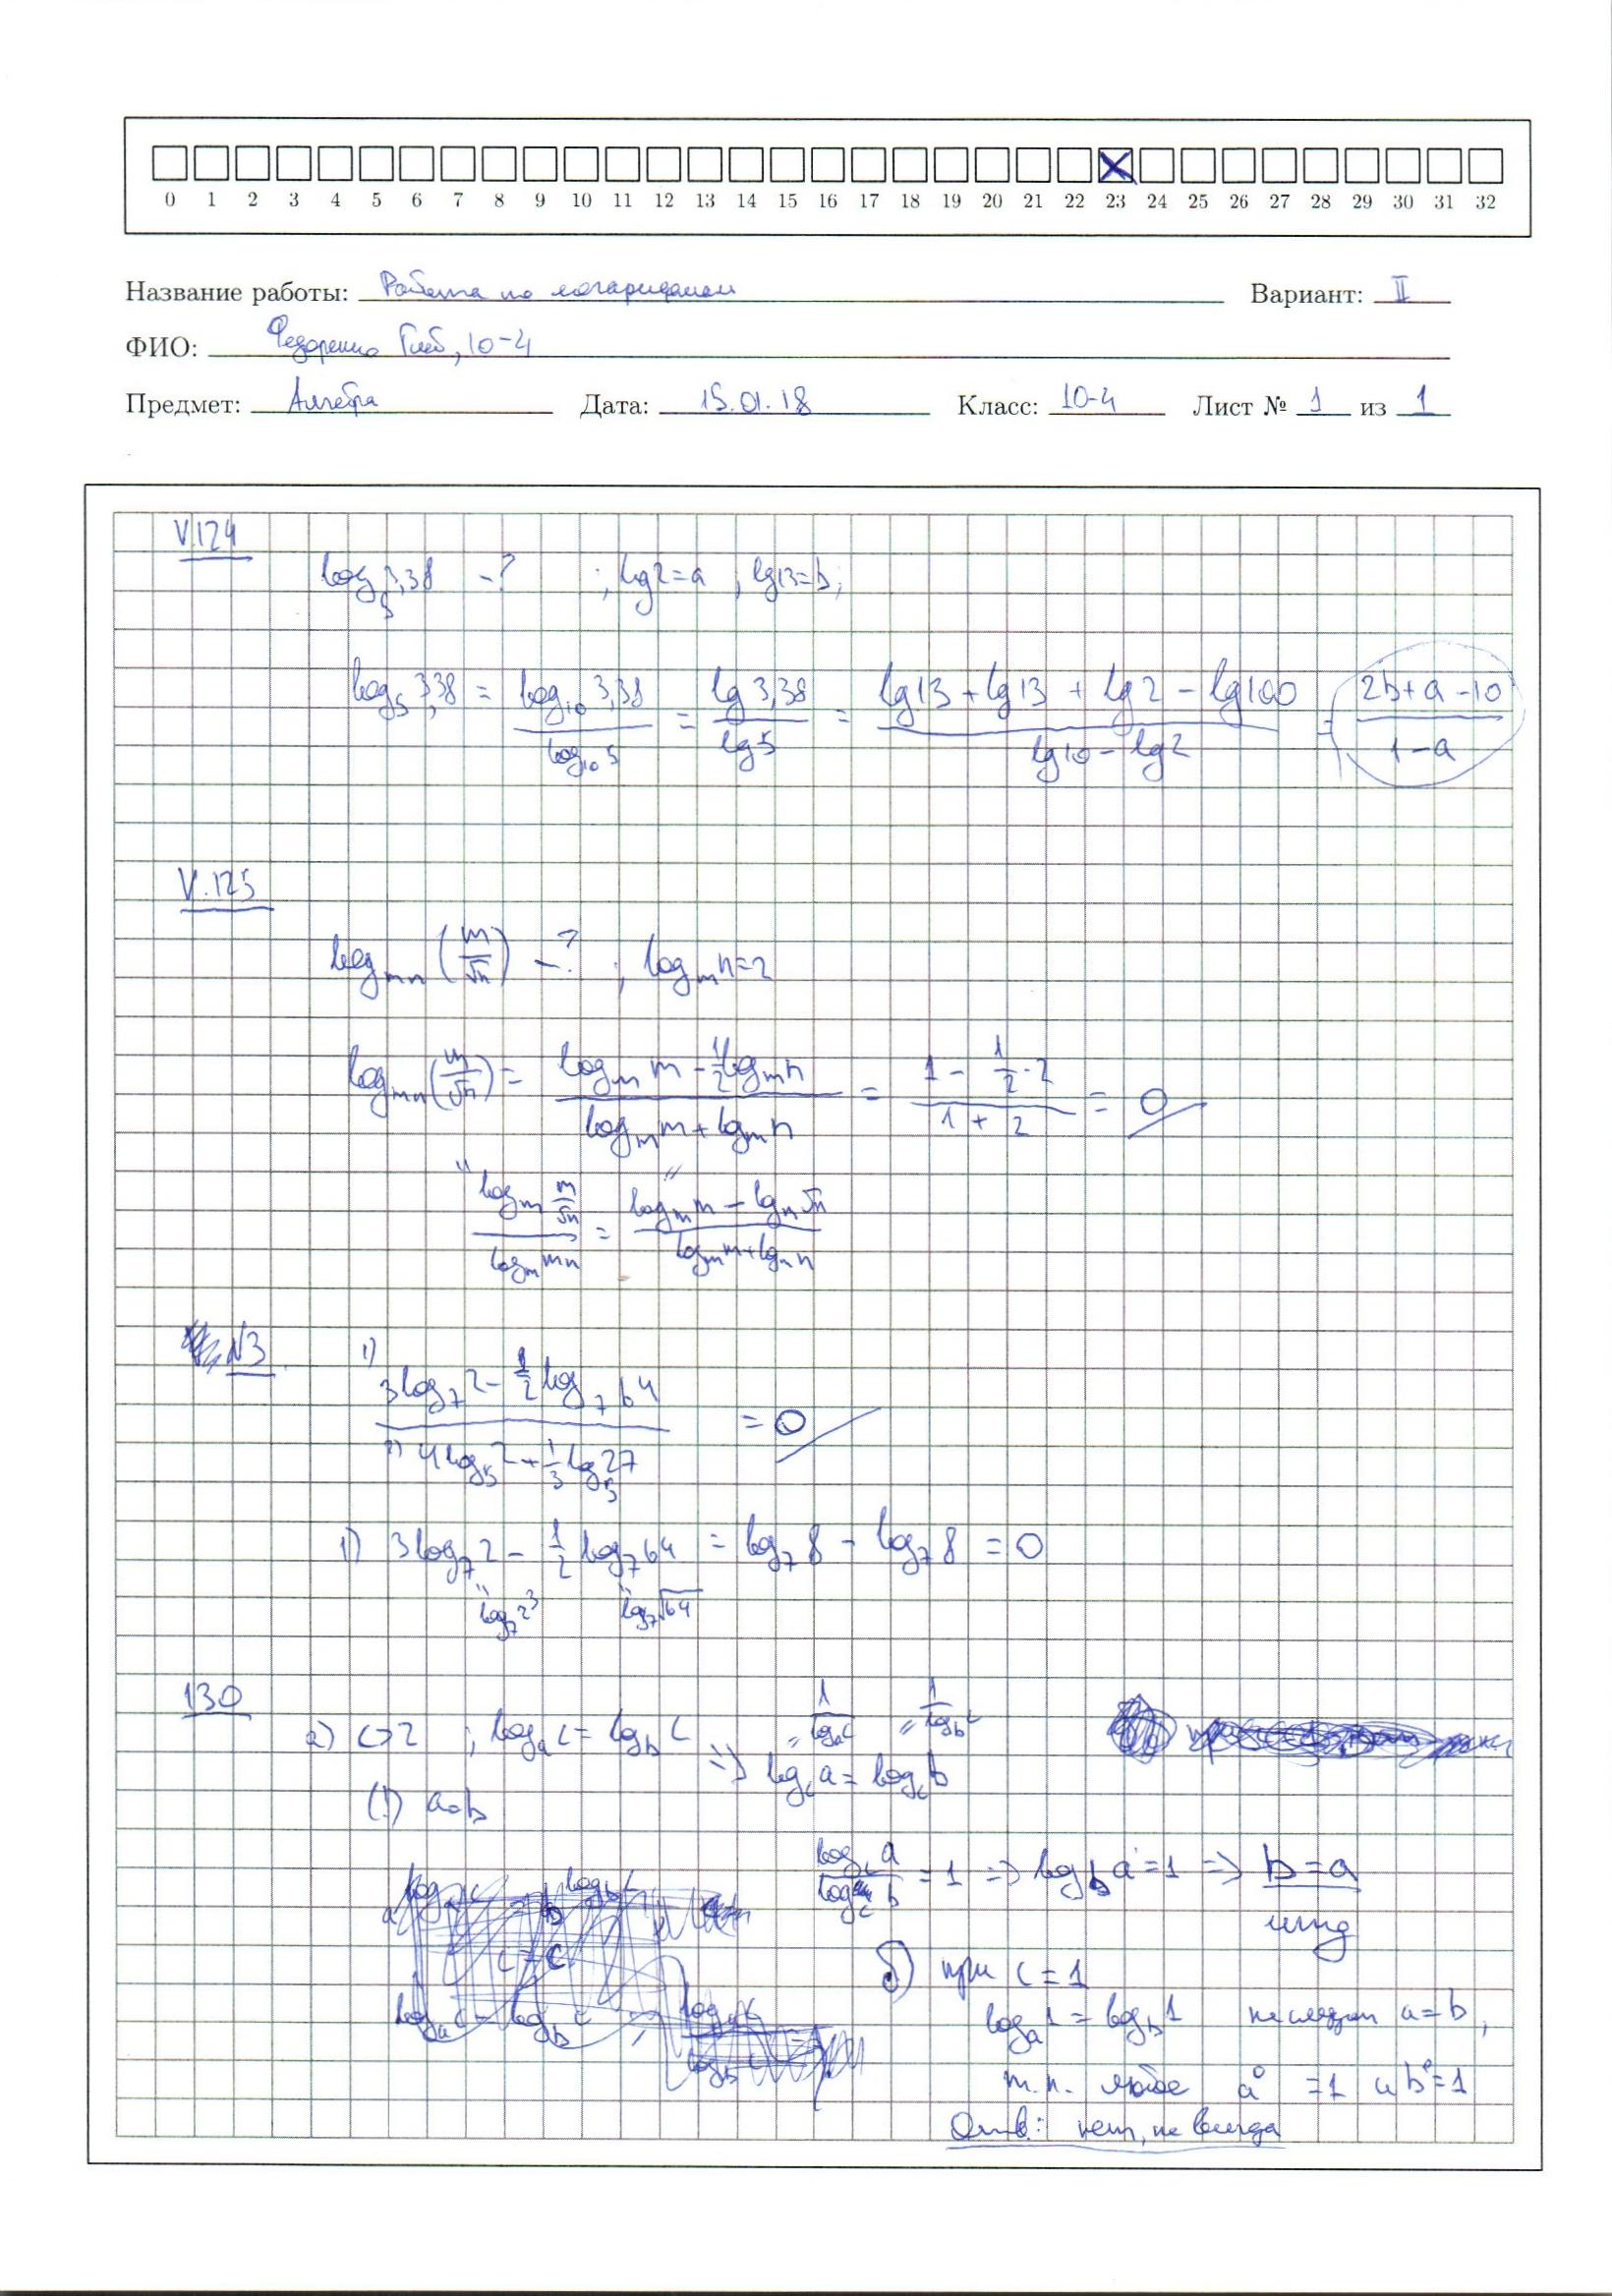 0 1 2 3 4 5 6 7 8 9 10 11 12 13 14 15 16 17 18 19 20 21 22 23 24 25 26 27 28 29 30 31 32
Название работы: Работа по логарифмам Вариант: II
ФИО: Федоренко Глеб, 10-4
Предмет: Алгебра Дата: 15.01.18 Класс: 10-4 Лист № 1 из 1
V.124
log₅ 3,38 - ? ; lg2=a ; lg13=b;
log₅ 3,38 = log₁₀ 3,38 / log₁₀ 5 = lg 3,38 / lg 5 = (lg13 + lg13 + lg2 - lg100) / (lg10 - lg2) = (2b+a-10) / (1-a)
V.125
log_mn (m/√n) - ? ; log_m n=2
log_mn (m/√n) = (log_m m - 1/2 log_m n) / (log_m m + log_m n) = (1 - 1/2·2) / (1 + 2) = 0
" "
(log_m m/√n) / (log_m mn) = (log_m m - log_m √n) / (log_m m + log_m n)
N3
1) (3log₇2 - 1/2 log₇64) / 2) (4log₅2 + 1/3 log₅27) = 0
1) 3log₇2 - 1/2 log₇64 = log₇8 - log₇8 = 0
" log₇2³ " log₇√64
130
а) c>2 ; log_a c = log_b c => log_c a = log_c b
= 1/log_a c = 1/log_b c
(!) a=b
log_c a / log_c b = 1 => log_b a = 1 => b=a
чтд
б) при c=1
log_a 1 = log_b 1 не следует a=b,
т.к. любое a⁰ =1 и b⁰=1
Отв: нет, не всегда